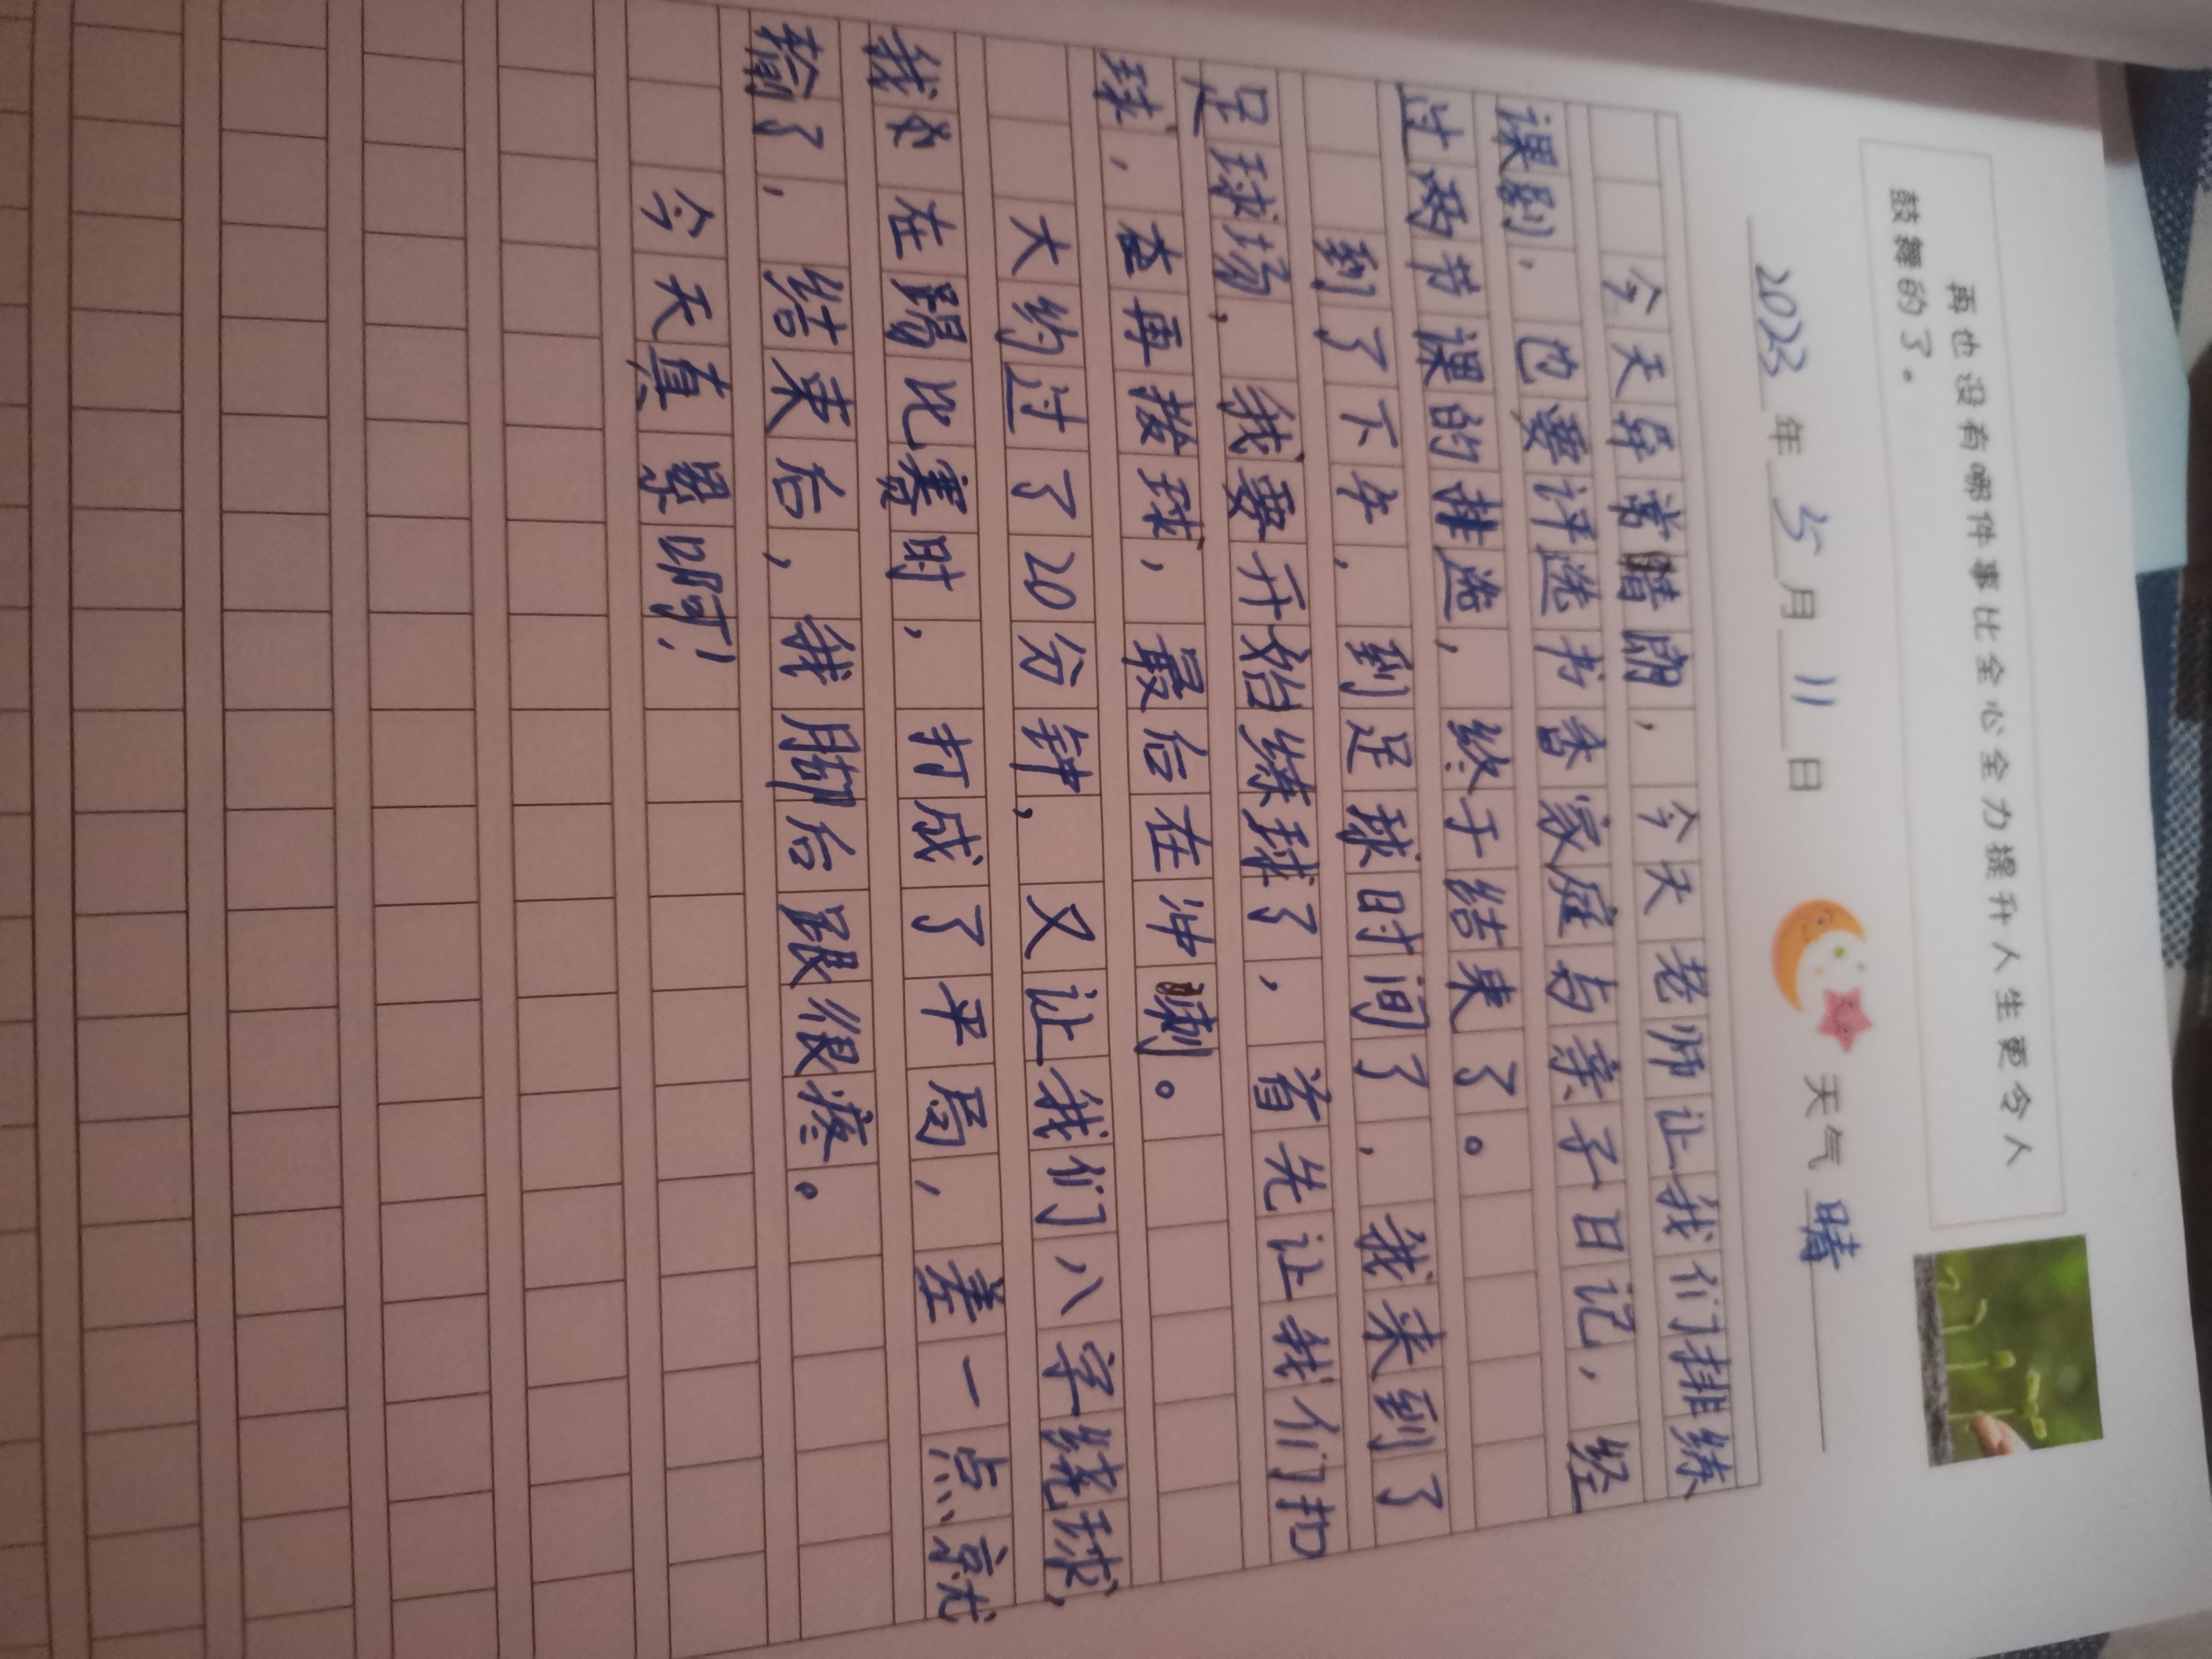 再也没有哪件事比全心全力提升人生更令人
鼓舞的了。
2023年5月11日 天气 晴
今天异常晴朗，今天老师让我们排练
课剧，也要评选书香家庭与亲子日记，经
过两节课的排选，终于结束了。
到了下午，到足球时间了，我来到了
足球场，我要开始练球了，首先让我们扣
球，在再拨球，最后在冲刺。
大约过了20分钟，又让我们八字绕球，
我在踢比赛时，打成了平局，差一点就
输了，结束后，我脚后跟很疼。
今天真累啊！